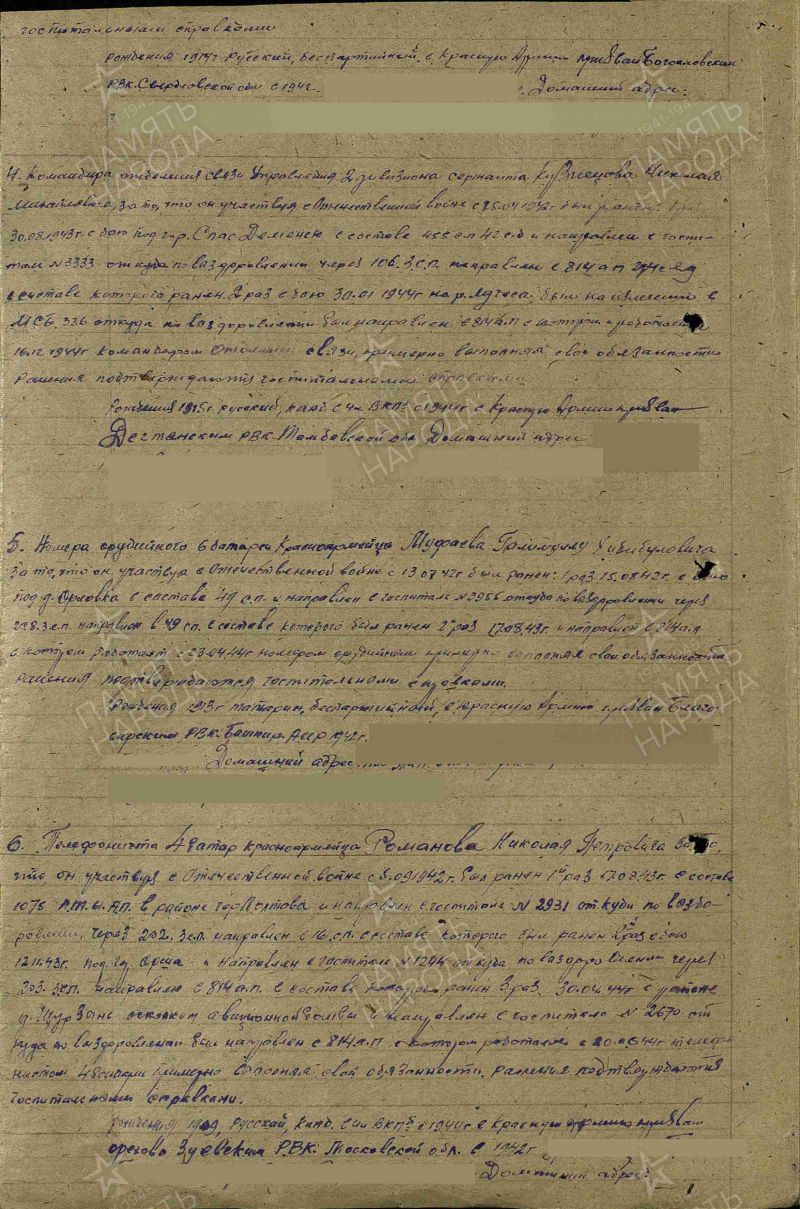 госпитальными справками
рождения 1914г Русский, беспартийный, в Красную Армию призван Богословским
РВК Свердловской обл в 194 г. Домашний адрес:
4. Командира отделения связи Управления 2 дивизиона сержанта Кузнецова Николая
Михайловича, за то, что он участвуя в Отечественной войне с 25.04.1942г был ранен:
30.08.1943г. в бою под гор. Спас Деменск в составе 455 сп 42 с.д и направлен в госпи-
тал N 3333 откуда по выздоровлении через 106. З.С.П. направлен в 814 ап
в составе которого ранен 2 раз в бою 30.01 1944г на р. Лучеса, был на излечении в
МСБ, 336 откуда по выздоровлении был направлен в 814 а.п в котором работает
16.12 1944г командиром Отделения связи, примерно выполняя свои обязанности
ранения подтверждаются госпитальными справками
Рождения 1915г русский, канд. в чл. ВКПб с 1944г в Красную Армию призван
Дегтянским РВК Тамбовской обл Домашний адрес
5. Номера орудийного 6 батареи Красноармейца Муфаева Хибибуловича
За то, что он участвуя в Отечественной войне с 13 07 42г был ранен: 1 раз 15.08 42г. в бою
под д. Орловка в составе 49 с.п. и направлен в госпиталь N 2956 откуда по выздоровлении через
з.с.п. направлен в 49 сп. в составе которого был ранен 2й раз 17.08.43г и направлен в 814 а.п
в котором работает с 23.04.44г номером орудийным примерно выполняя свои обязанности
ранения подтверждаются госпитальными справками.
Рождения 1913г татарин, беспартийный, в Красную Армию призван Благо-
варским РВК. Башкир. Аср 1942г.
Домашний адрес.
6. Телефониста 4 батар красноармейца Романова Николая Петровича За то,
что, он участвуя в Отечественной войне с 5.09 1942г. был ранен 1й раз 17.08.43г в составе
1075 А.П. в районе гор Полтава и направлен в госпиталь N 2931 откуда по выздо-
ровлении, через 202. З.с.п. направлен в 16. с.п. в составе которого был ранен 2й раз в бою
12.11.43г. под. гор. Орша и направлен в госпиталь N 1244 откуда по выздоровлении через
203. зсп. направлен в 814 а.п. в составе которого ранен 3 раз 30.04.44г в районе
д. осколком авиационной бомбы и направлен в госпиталь N 2670 от
куда по выздоровлении был направлен в 814 а.п в котором работает с телефо
нистом 4 батареи примерно выполняя свои обязанности. ранения подтверждаются
госпитальными справками.
рождения 1909, Русский, Канд. в чл ВКПб с 1944г в Красную Армию призван
орехово Зуевским Р.В.К: Московской обл. в 1942г
Домашний адрес:
ПАМЯТЬ НАРОДА